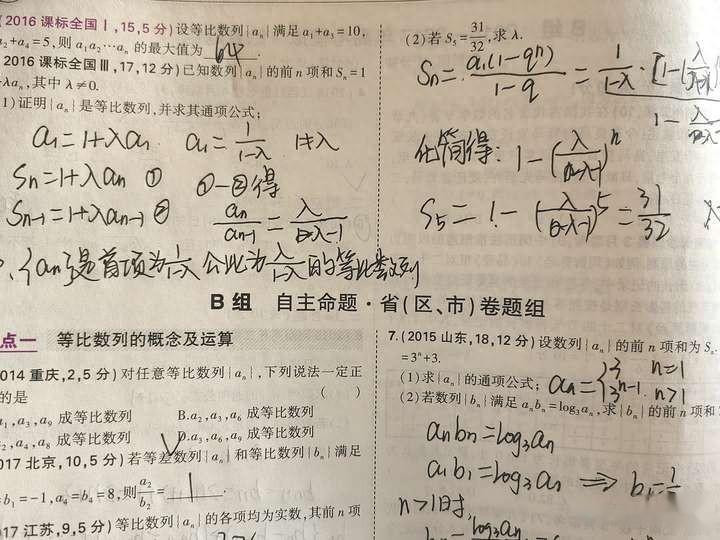 (2016课标全国Ⅰ,15,5分)设等比数列{aₙ}满足a₁+a₃=10,
a₂+a₄=5,则a₁a₂⋯aₙ的最大值为 64 .
2016课标全国Ⅲ,17,12分)已知数列{aₙ}的前n项和Sₙ=1
+λaₙ,其中λ≠0.
(1)证明{aₙ}是等比数列,并求其通项公式;
a₁=1+λa₁ a₁=1/(1-λ) 1≠λ
Sₙ=1+λaₙ ① ①-②得
Sₙ₋₁=1+λaₙ₋₁ ② aₙ/aₙ₋₁=λ/(λ-1)
{aₙ}是首项为1/(1-λ)公比为λ/(1-λ)的等比数列
(2)若S₅=31/32,求λ.
Sₙ=a₁(1-qⁿ)/(1-q)=1/(1-λ)·[1-(λ/
1-λ/
化简得:1-(λ/(λ-1))ⁿ
S₅=1-(λ/(λ-1))⁵=31/32
B组 自主命题·省(区、市)卷题组
点一 等比数列的概念及运算
014重庆,2,5分)对任意等比数列{aₙ},下列说法一定正
的是 ( )
a₁,a₃,a₉成等比数列 B.a₂,a₃,a₆成等比数列
a₂,a₄,a₈成等比数列 D.a₃,a₆,a₉成等比数列
017北京,10,5分)若等差数列{aₙ}和等比数列{bₙ}满足
=b₁=-1,a₄=b₄=8,则a₂/b₂= 1 .
017江苏,9,5分)等比数列{aₙ}的各项均为实数,其前n项
7.(2015山东,18,12分)设数列{aₙ}的前n项和为Sₙ.
=3ⁿ+3.
(1)求{aₙ}的通项公式; aₙ={3 n=1
3ⁿ⁻¹ n>1
(2)若数列{bₙ}满足aₙbₙ=log₃aₙ,求{bₙ}的前n项和
aₙbₙ=log₃aₙ
a₁b₁=log₃a₁ ⟹ b₁=1/
n>1时,
log₃aₙ